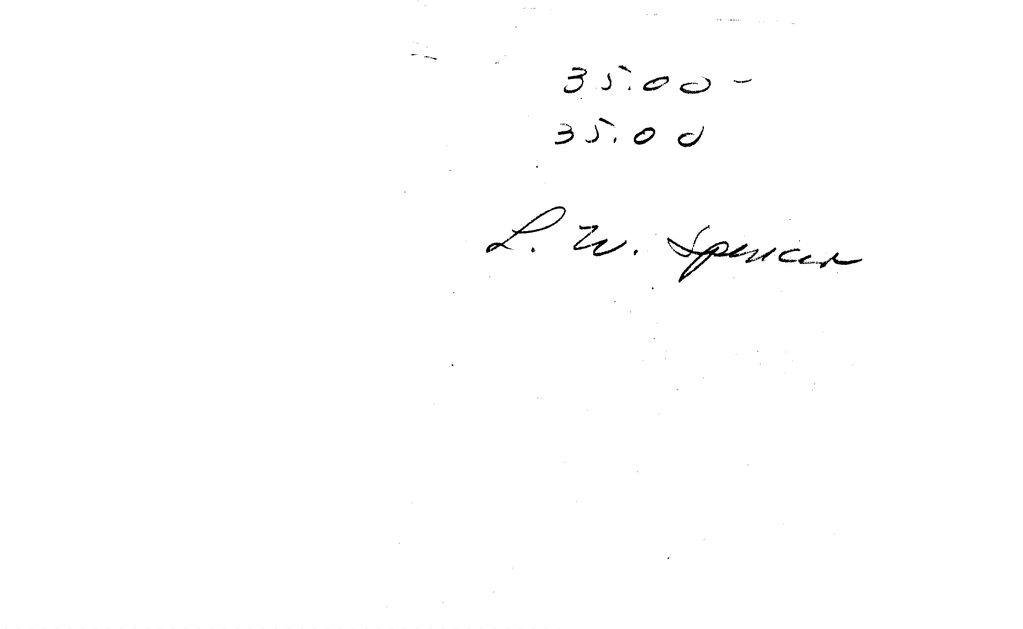 35.00 -
35.00
L. W. Spencer